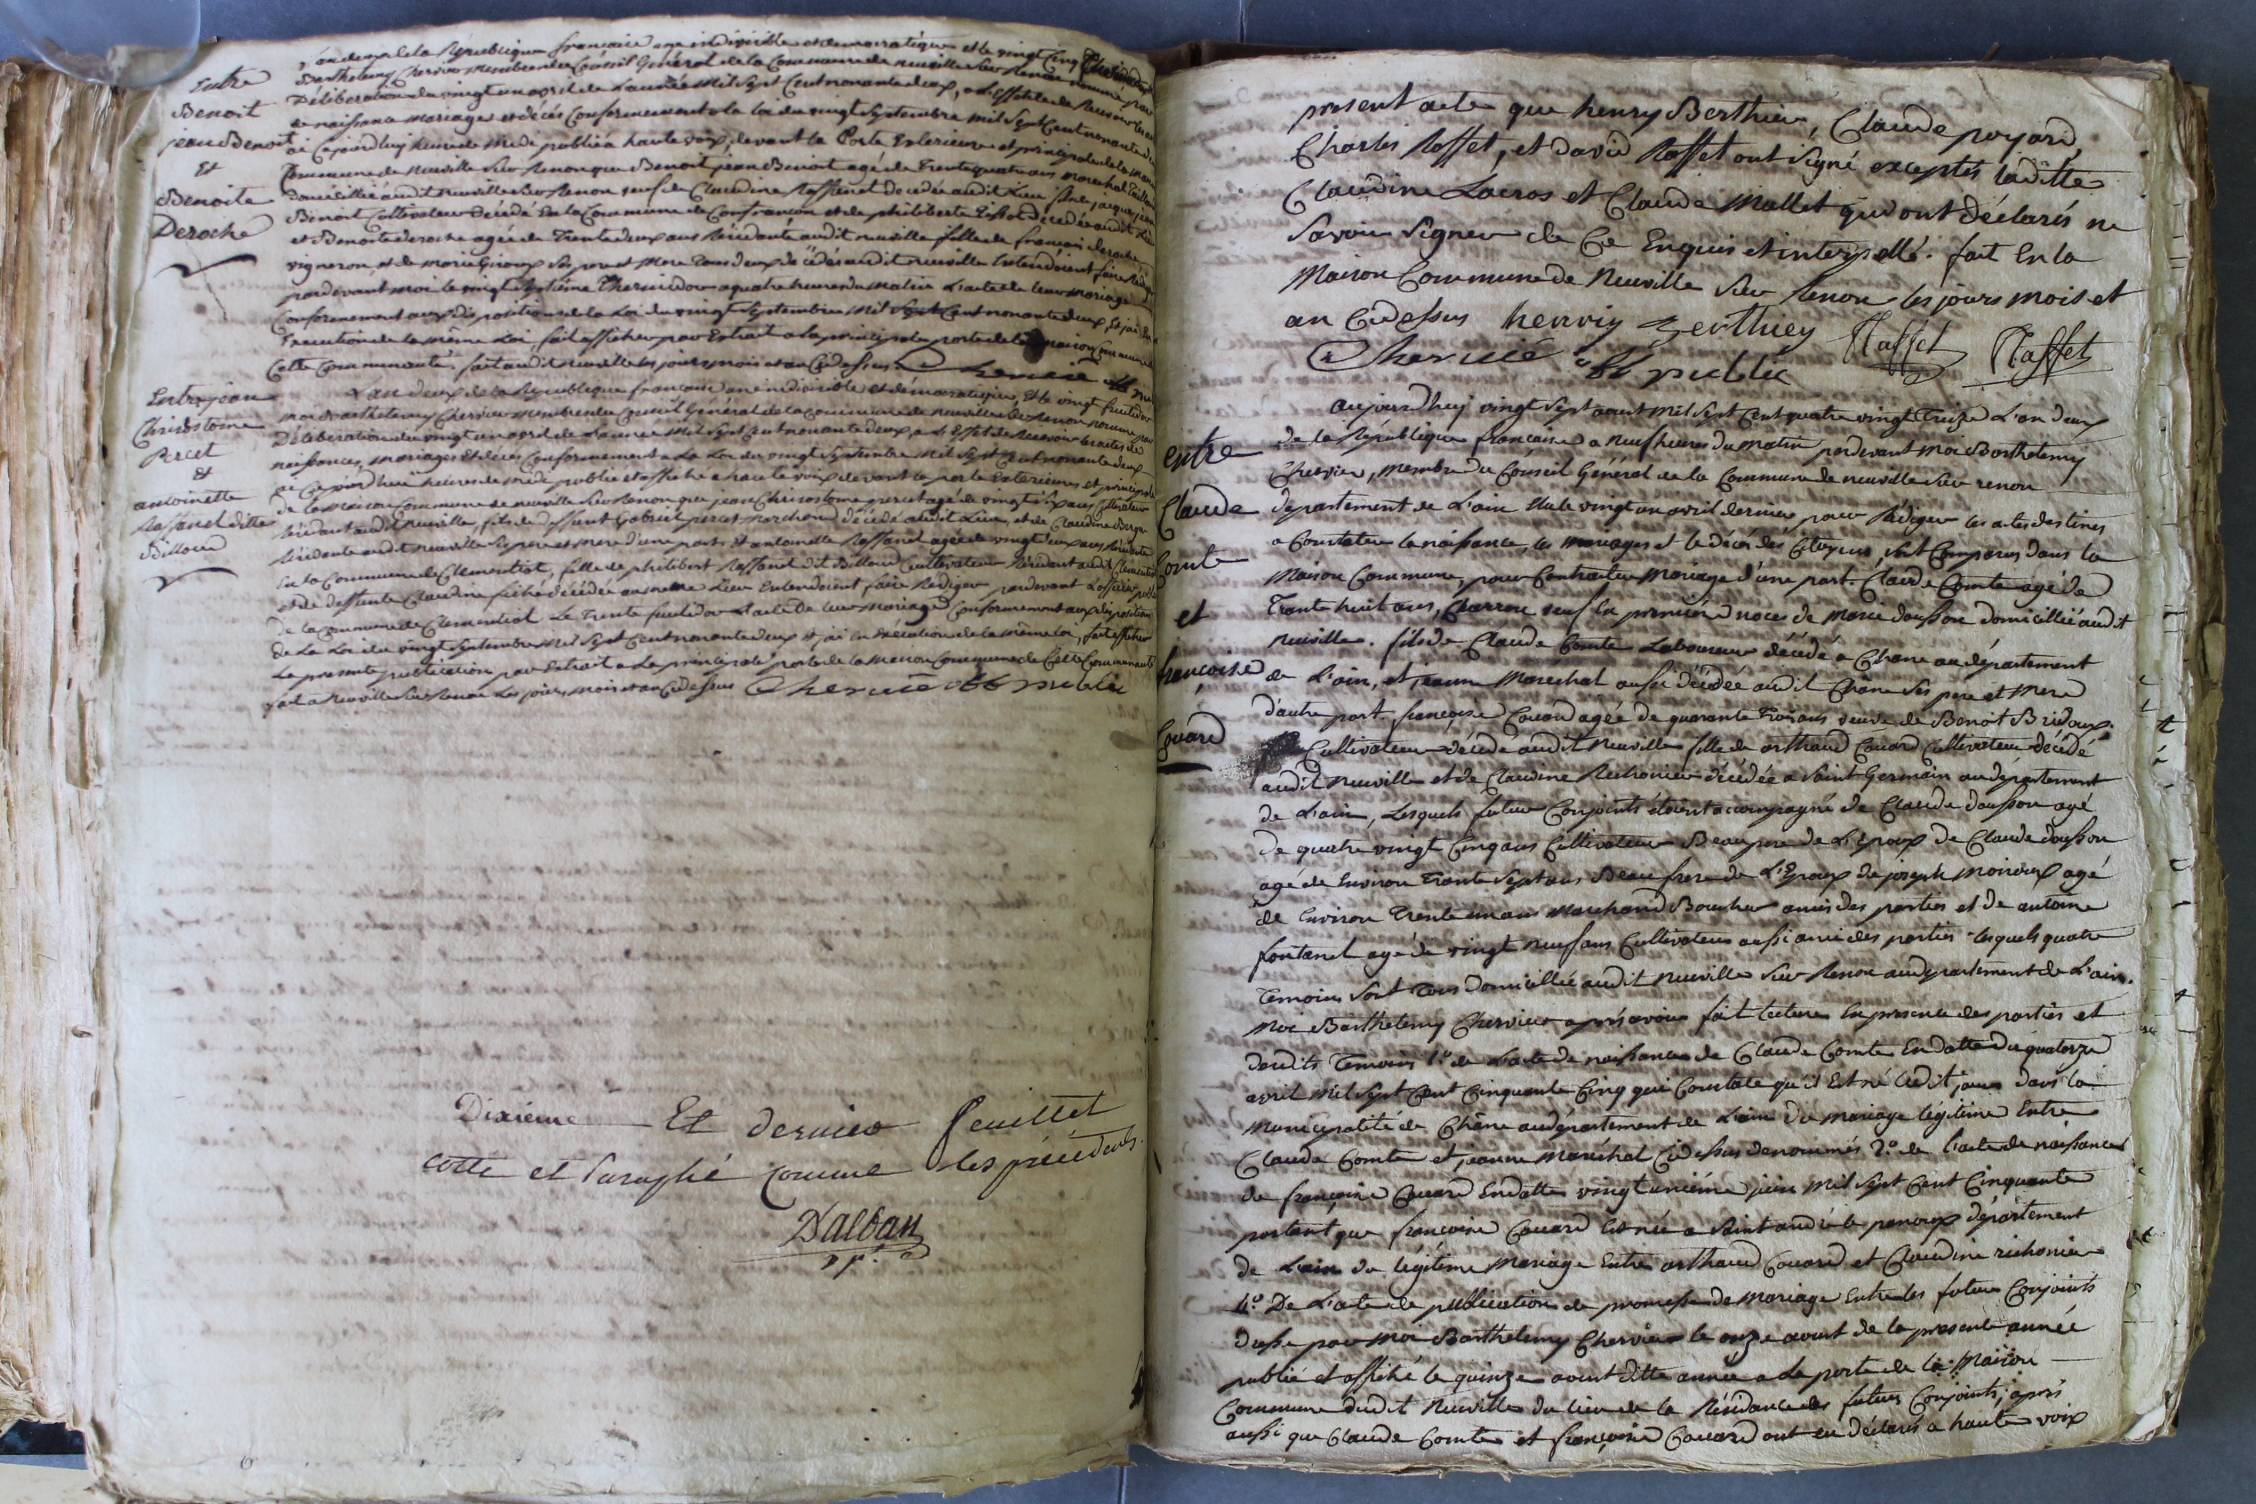 Entre
Benoit
jean Benoit
Et
Benoite
Deroche
L'an deux de la République française une indivisible et démocratique et le vingt Cinq Thermidor
Barthelemy Chervier Membre du Conseil Général de la Commune de neuville sur Renon nommé par
Déliberation du vingt un avril de L'année Mil Sept Cent nonante deux, a L'Effet de Recevoir les actes
de naissance mariage et décés Conformement a la loi du vingt Septembre Mil Sept Cent nonante deux
ai Cejourdhuy heure de Midi publié a haute voix, devant la Porte Exterieure et principale de la maison
Commune de Neuville Sur Renon que Benoit jean Benoit agé de Trente quatre ans marechal Taillandier
domicillié audit neuville sur Renon veuf de Claudine Raffanel décédée audit Lieu fils de jacques jean
Benoit Cultivateur décédé En la Commune de Confrançon et de philiberte décédée audit Lieu
et Benoite deroche agée de Trente deux ans Résidante audit neuville fille de françois deroche
vigneron, et de Marie Giroux Ses pere et Mere Tous deux décédés audit neuville Entendoient faire Rédiger
pardevant moi le vingt Septième Thermidor a quatre heures du Matin L'acte de leur mariage
Conformement aux dispositions de la Loi du vingt Septembre Mil Sept Cent nonante deux, Et j'ai En
Execution de la même Loi, fait afficher par Extrait a la principale porte de la maison Commune de
Cette Communauté. fait audit neuville les jours, mois et an Cidessus Chervié off pu
Entre jean
Chrisostome
Percet
Et
antoinette
Raffanel ditte
Billoud
L'an deux de la République française une indivisible et démocratique, Et le vingt fructidor
moi Barthelemy Chervier Membre du Conseil Général de la Commune de neuville sur Renon nommé par
Déliberation du vingt un avril de L'année Mil Sept Cent nonante deux, a L'Effet de Recevoir les actes de
naissances, mariages Et décés Conformement a la Loi du vingt Septembre Mil Sept Cent nonante deux
ai Cejourdhui heures de Midi publié et affiché a haute voix devant la porte Exterieures et principale
de la Maison Commune de neuville sur Renon que jean Chrisostome percet agé de vingt Six ans Cultivateur
Résidant audit neuville, fils de deffunt Gabriel percet Marchand décédé audit Lieu, et de Claudine
Résidante audit neuville Ses pere et mere d'une part, Et antoinette Raffanel agée de vingt deux ans Résidante
En la Commune de Clementiat, fille de philibert Raffanel dit Billoud Cultivateur Résidant audit Clementiat
et de deffunte Claudine décédée au même Lieu Entendoient faire Rediger pardevant L'officier public
de la Commune de Clementiat Le Trente fructidor L'acte de leur Mariage Conformement aux dispositions
de La Loi du vingt Septembre Mil Sept Cent nonante deux Et j'ai En Execution de la même loi, fait afficher
La presente publication par Extrait a La principale porte de la Maison Commune de Cette Communauté
fait a Neuville Sur Renon Les jours, mois et an Cidessus Chervié off public
Dixieme Et dernier feuillet
cotté et Paraphé comme les précédents.
Dalban
present acte que henry Berthier, Claude poyard,
Charles Raffet, et david Raffet ont Signé exceptés laditte
Claudine Lacros et Claude Mallet qui ont déclarés ne
Savoir Signer de Ce Enquis et interpellé. fait En la
Maison Commune de Neuville Sur Renon les jours mois et
an Cidessus henriy berthiey Raffet Raffet
Chervié off public
entre
Claude
Comte
et
françoise
Couard
aujourdhuj vingt Sept aoust Mil Sept Cent quatre vingt Treize L'an deux
de la République francaise a neuf heures du Matin pardevant Moi Barthelemy
Chervier, membre du Conseil Général de la Commune de neuville Sur renon
département de L'ain Elu le vingt un avril dernier pour Rédiger les actes destinés
a Constater la naissance, les mariages et le décés des Citoyens, Sont Comparus dans la
Maison Commune, pour Contracter Mariage d'une part. Claude Comte agé de
Trente huit ans, Charron veuf En premiere noces de Marie dousson domicillié audit
neuville. fils de Claude Comte Laboureur décédé a Chane au département
de L'ain, et jeanne Maréchal aussi décédée audit Chane Ses pere et Mere
d'autre part. françoise Couard agée de quarante Trois ans veuve de Benoit Bridoux
Cultivateur décédé audit Neuville fille de arthaud Couard Cultivateur décédé
audit Neuville et de Claudine Richonier décédée a Saint Germain au département
de L'ain, Lesquels futur Conjoints étoient accompagné de Claude dousson agé
de quatre vingt Cinq ans Cultivateur Beaupere de L'Epoux de Claude dousson
agé de Environ Trente Sept ans Beau frere de L'Epoux de joseph Moiroux agé
de Environ Trente un ans Marchand Boucher amis des parties et de antoine
fontanel agé de vingt neuf ans Cultivateur aussi ami des parties - lesquels quatre
Temoins Sont Tous Domicillié audit neuville Sur Renon au département de L'ain.
Moi Barthelemy Chervier apres avoir fait lecture En presence des parties et
desdits Temoins 1.o de L'acte de naissance de Claude Comte En datte du quatorze
avril Mil Sept Cent Cinquante Cinq qui Constate qu'il Est né ledit jour dans la
Municipalité de Chane au département de L'ain du mariage légitime Entre
Claude Comte et jeanne Maréchal Cidessus denommés 2.o de l'acte de naissance
de françoise Couard En datte vingt unième juin Mil Sept Cent Cinquante
portant que francoise Couard Est née a Saint andré le panoux département
de L'ain du légitime Mariage Entre arthaud Couard et Claudine richonier
4.o De L'acte de publication de promesse de Mariage Entre les futur Conjoints
dressé par Moi Barthelemy Chervier le onze aoust de la presente année
publié et affiché le quinze aoust ditte année a La porte de la Maison
Commune dudit Neuville du lieu de la Résidance des futurs Conjoints, aprés
aussi que Claude Comte et françoise Couard ont eu déclarés a haute voix